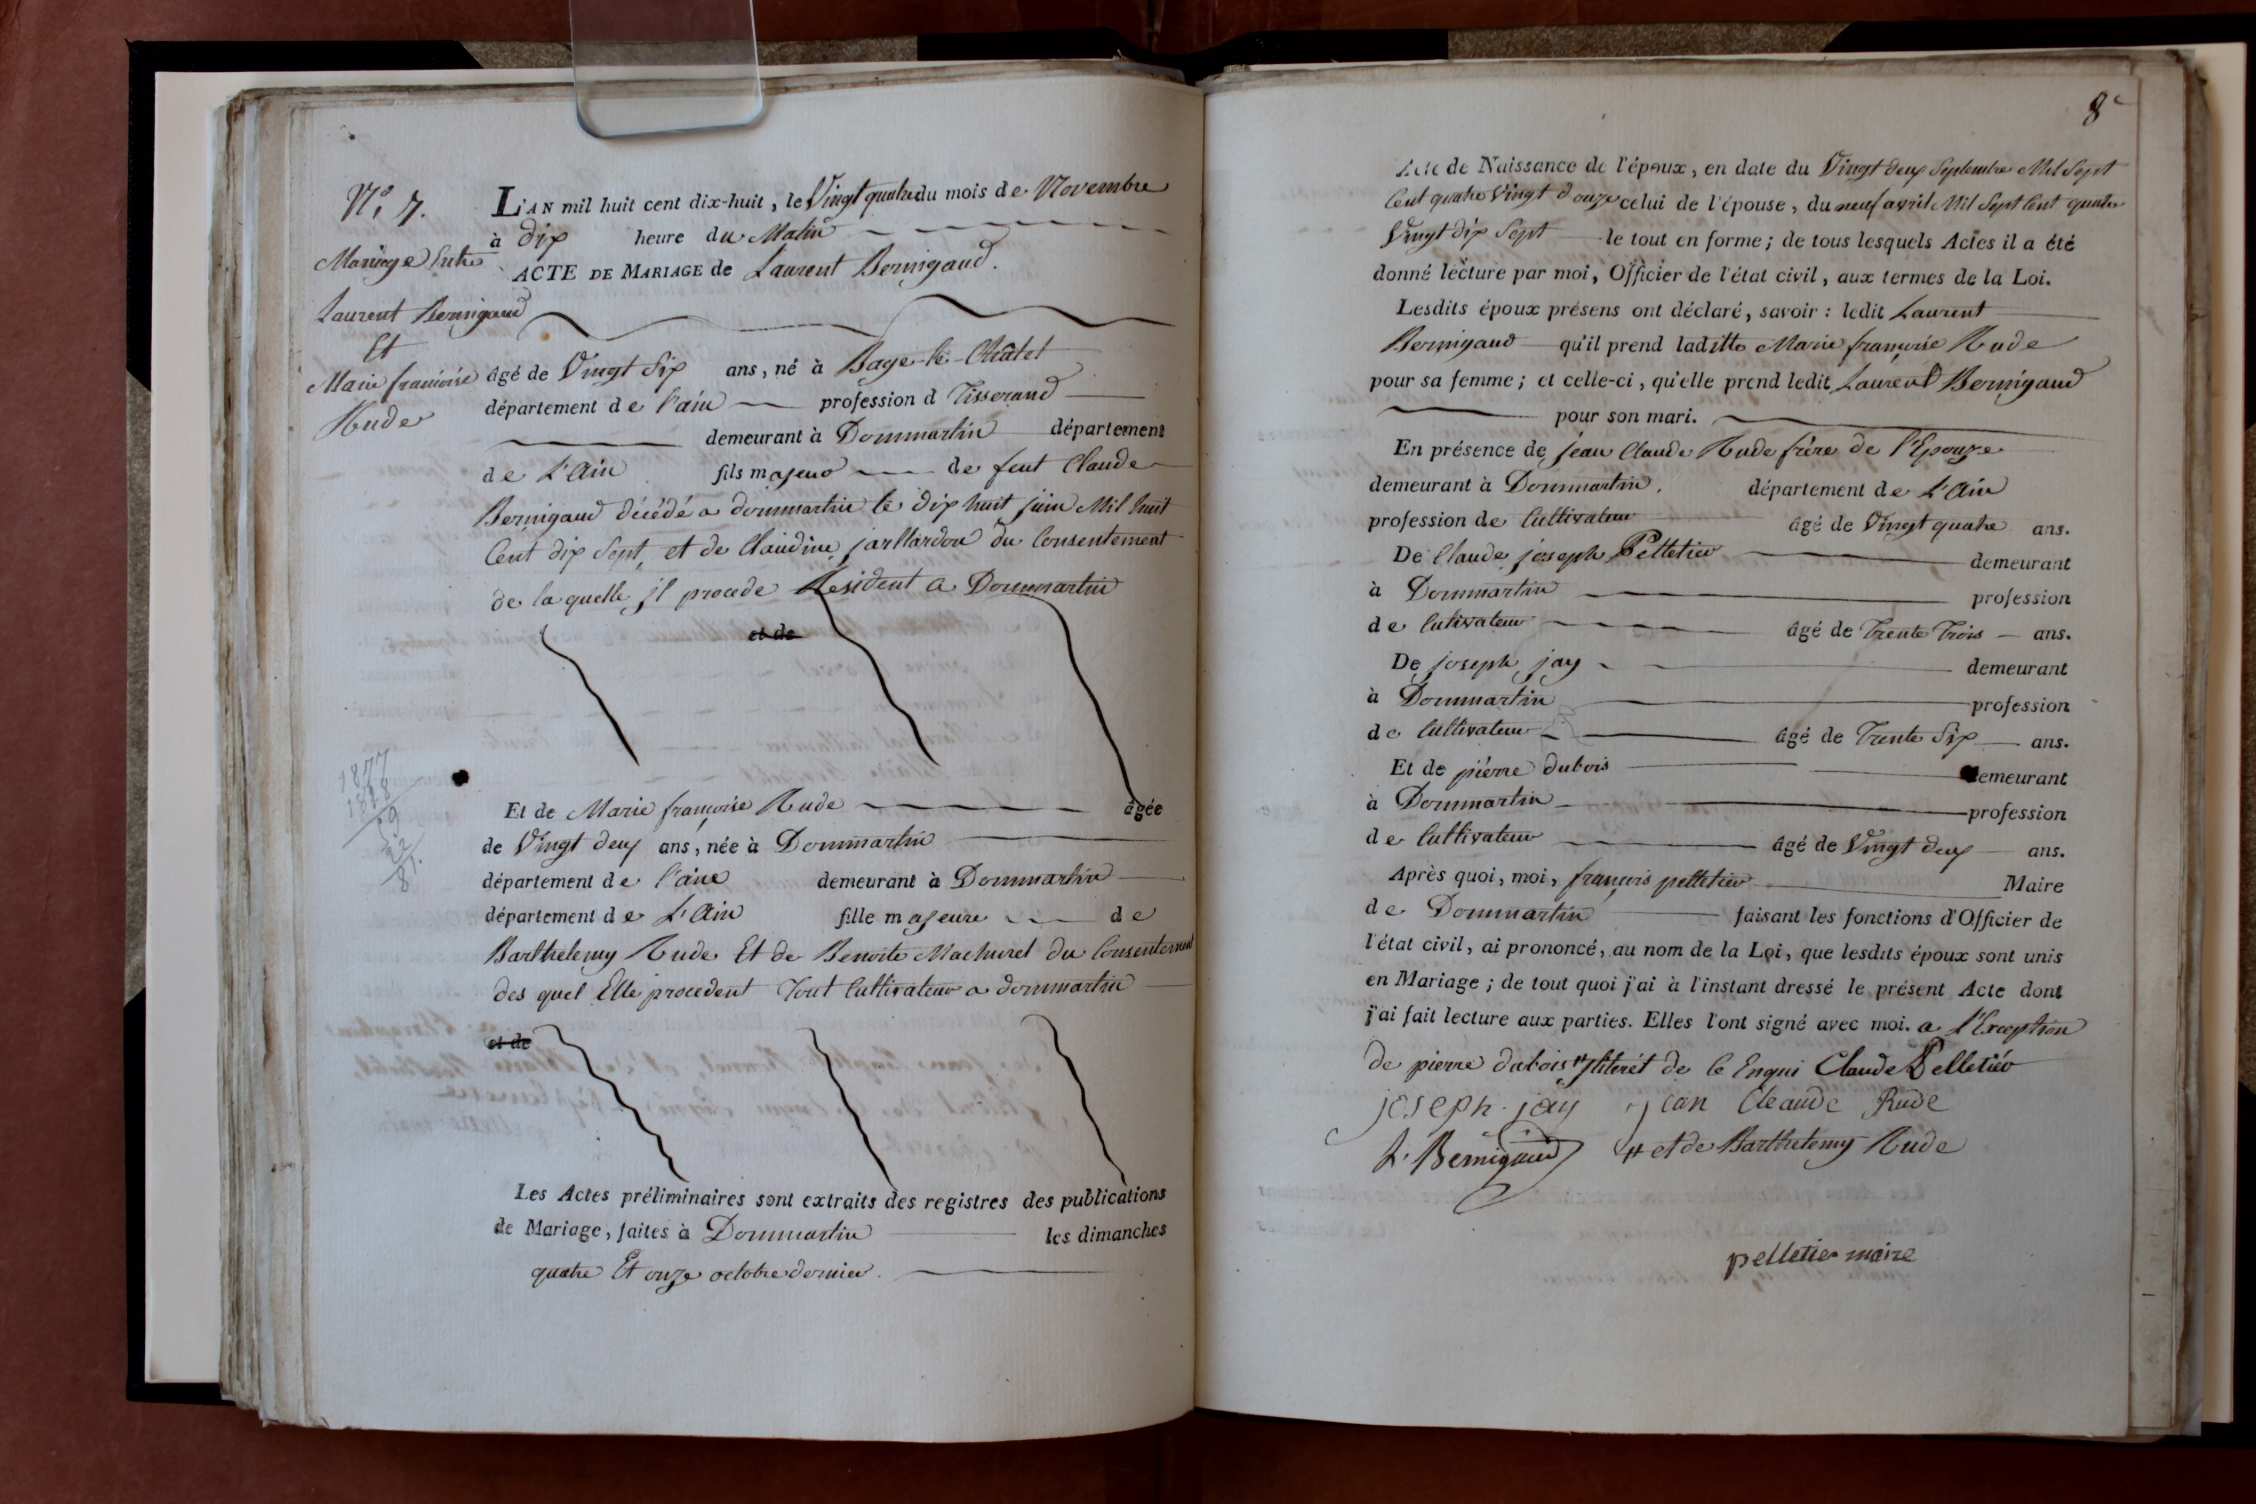 N.º 7.
Mariage Entre
Laurent Bernigaud
Et
Marie françoise
Rude
L'AN mil huit cent dix-huit, le Vingt quatre du mois de Novembre
à dix heure du Matin
ACTE DE MARIAGE de Laurent Bernigaud.
âgé de Vingt Six ans, né à Bage-le-Châtel
département de l'ain profession d Tisserand
demeurant à Dommartin département
de L'Ain fils majeur de feut Claude
Bernigaud décédé a dommartin le dix huit juin Mil huit
Cent dix Sept, et de Claudine jarllardon du Consentement
de la quelle il procede Resident a Dommartin
et de
1877
1818
59
22
81.
Et de Marie françoise Rude âgée
de Vingt deux ans, née à Dommartin
département de l'ain demeurant à Dommartin
département de L'Ain fille majeure de
Barthelemy Rude Et de Benoite Machuret du Consentement
des quel Elle procedent Tout Cultivateur a dommartin
et de
Les Actes préliminaires sont extraits des registres des publications
de Mariage, faites à Dommartin les dimanches
quatre Et onze octobre dernier.
8e
Acte de Naissance de l'époux, en date du Vingt deux Septembre Mil Sept
Cent quatre Vingt douze celui de l'épouse, du neuf avril Mil Sept Cent quatre
Vingt dix Sept le tout en forme; de tous lesquels Actes il a été
donné lecture par moi, Officier de l'état civil, aux termes de la Loi.
Lesdits époux présens ont déclaré, savoir: ledit Laurent
Bernigaud qu'il prend laditte Marie françoise Rude
pour sa femme; et celle-ci, qu'elle prend ledit Laurent Bernigaud
pour son mari.
En présence de jean Claude Rude frère de l'Epouze
demeurant à Dommartin. département de L'Ain
profession de Cultivateur âgé de Vingt quatre ans.
De Claude joseph Pelletier demeurant
à Dommartin profession
de Cutivateur âgé de Trente Trois ans.
De joseph jay demeurant
à Dommartin profession
de Cultivateur âgé de Trente Six ans.
Et de pierre dubois demeurant
à Dommartin profession
de Cultivateur âgé de Vingt deux ans.
Après quoi, moi, françois pelletier Maire
de Dommartin faisant les fonctions d'Officier de
l'état civil, ai prononcé, au nom de la Loi, que lesdits époux sont unis
en Mariage; de tout quoi j'ai à l'instant dressé le présent Acte dont
j'ai fait lecture aux parties. Elles l'ont signé avec moi. a l'Exception
de pierre dubois # jliterét de le Enqui Claude Pelletier
joseph. jay jean Cleaude Rude
L. Bernigaud # et de Barthelemy Rude
pelletier maire